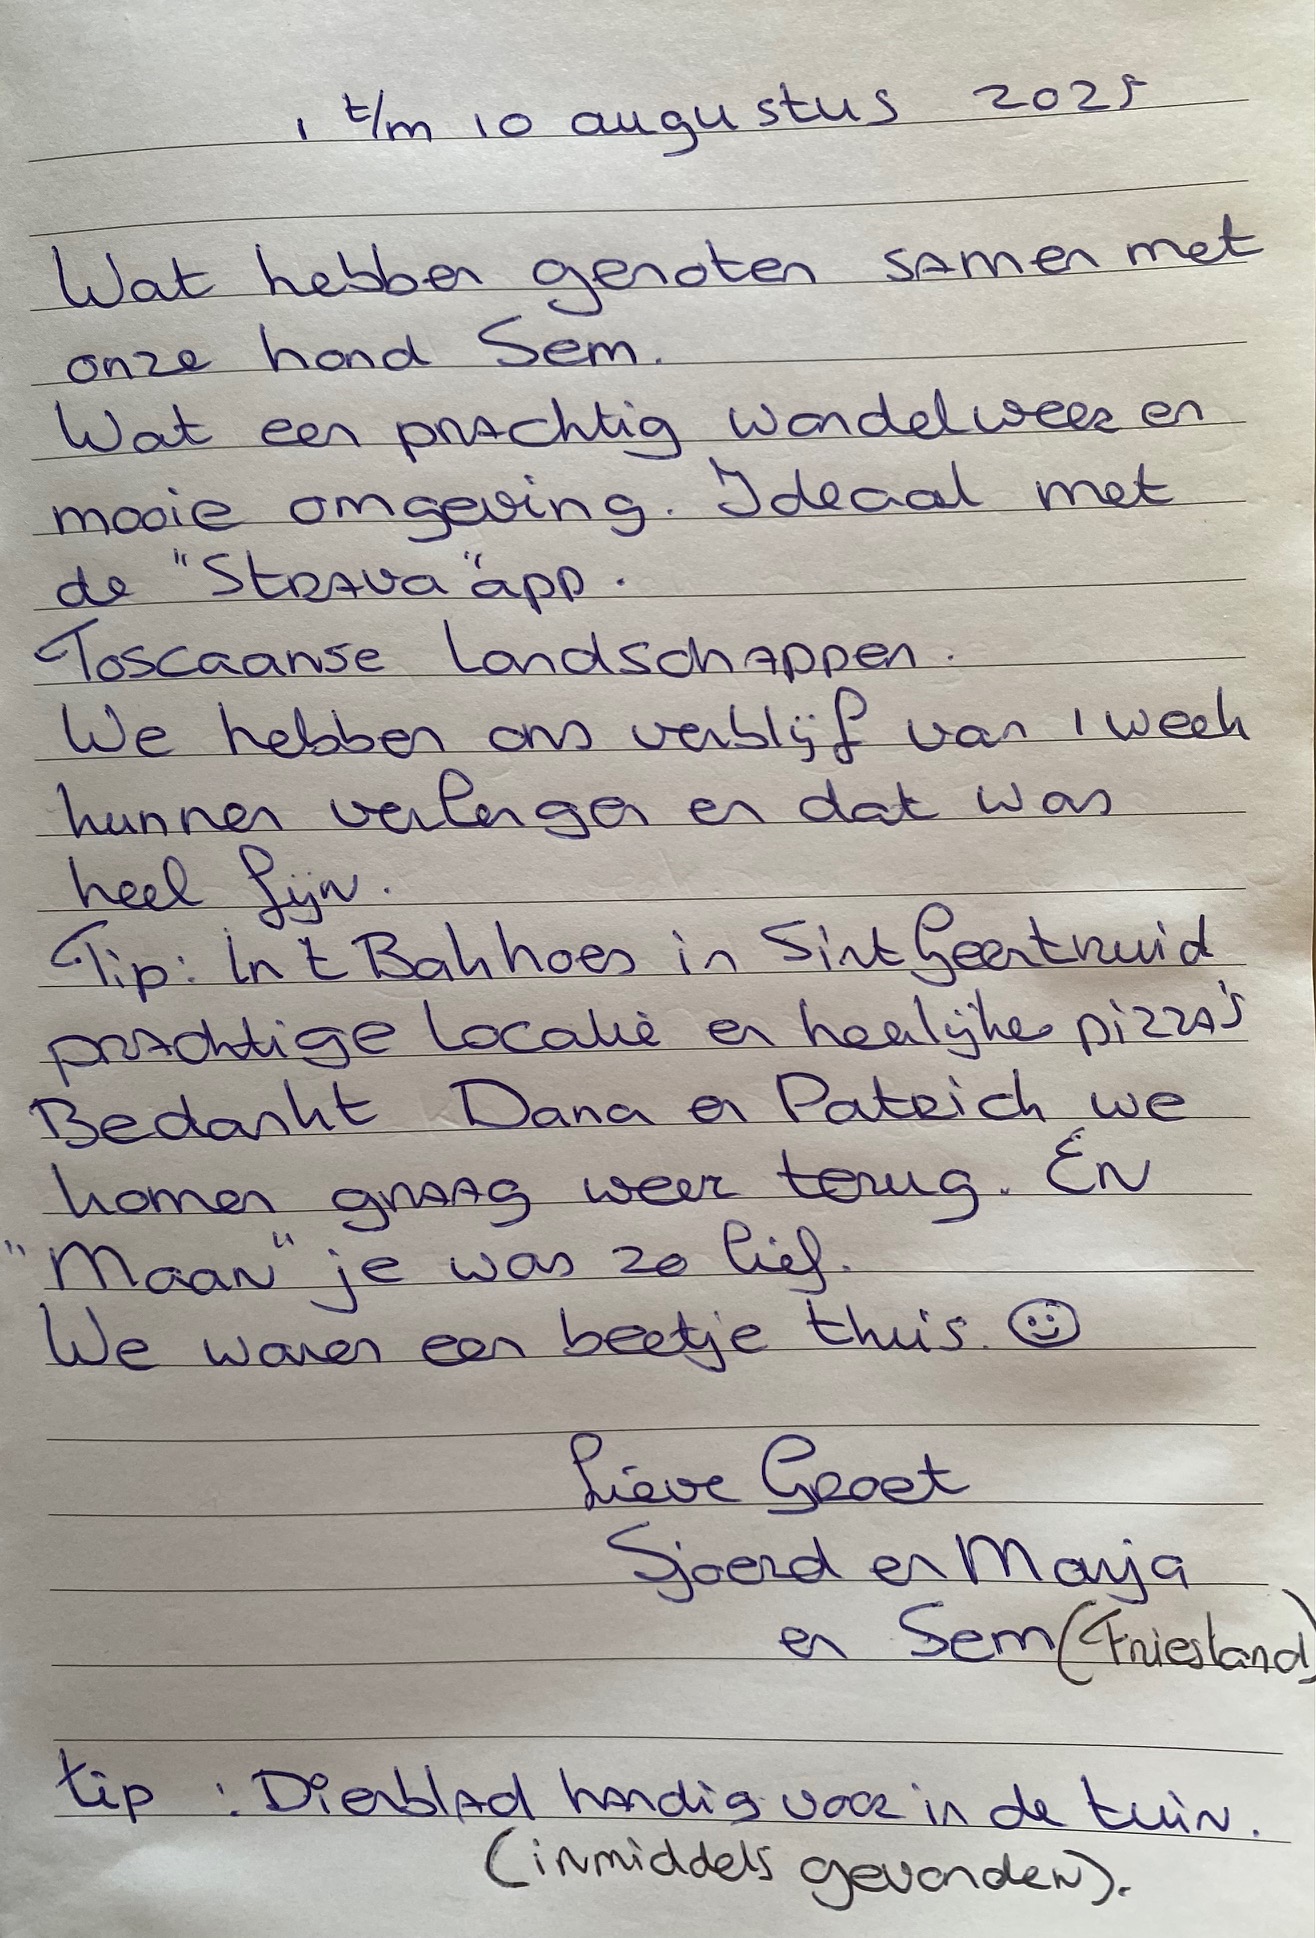 1 t/m 10 augustus 2025
Wat hebben genoten samen met
onze hond Sem.
Wat een prachtig wandelweer en
mooie omgeving. Ideaal met
de "Strava" app.
Toscaanse landschappen.
We hebben ons verblijf van 1 week
kunnen verlengen en dat was
heel fijn.
Tip: In 't Bakhoes in Sint Geertruid
prachtige locatie en heerlijke pizza's
Bedankt Dana en Patrick we
komen graag weer terug. Én
"Maan" je was zo lief.
We waren een beetje thuis. ☺
Lieve Groet
Sjoerd en Marja
en Sem (Friesland)
tip : Dienblad handig voor in de tuin.
(inmiddels gevonden).